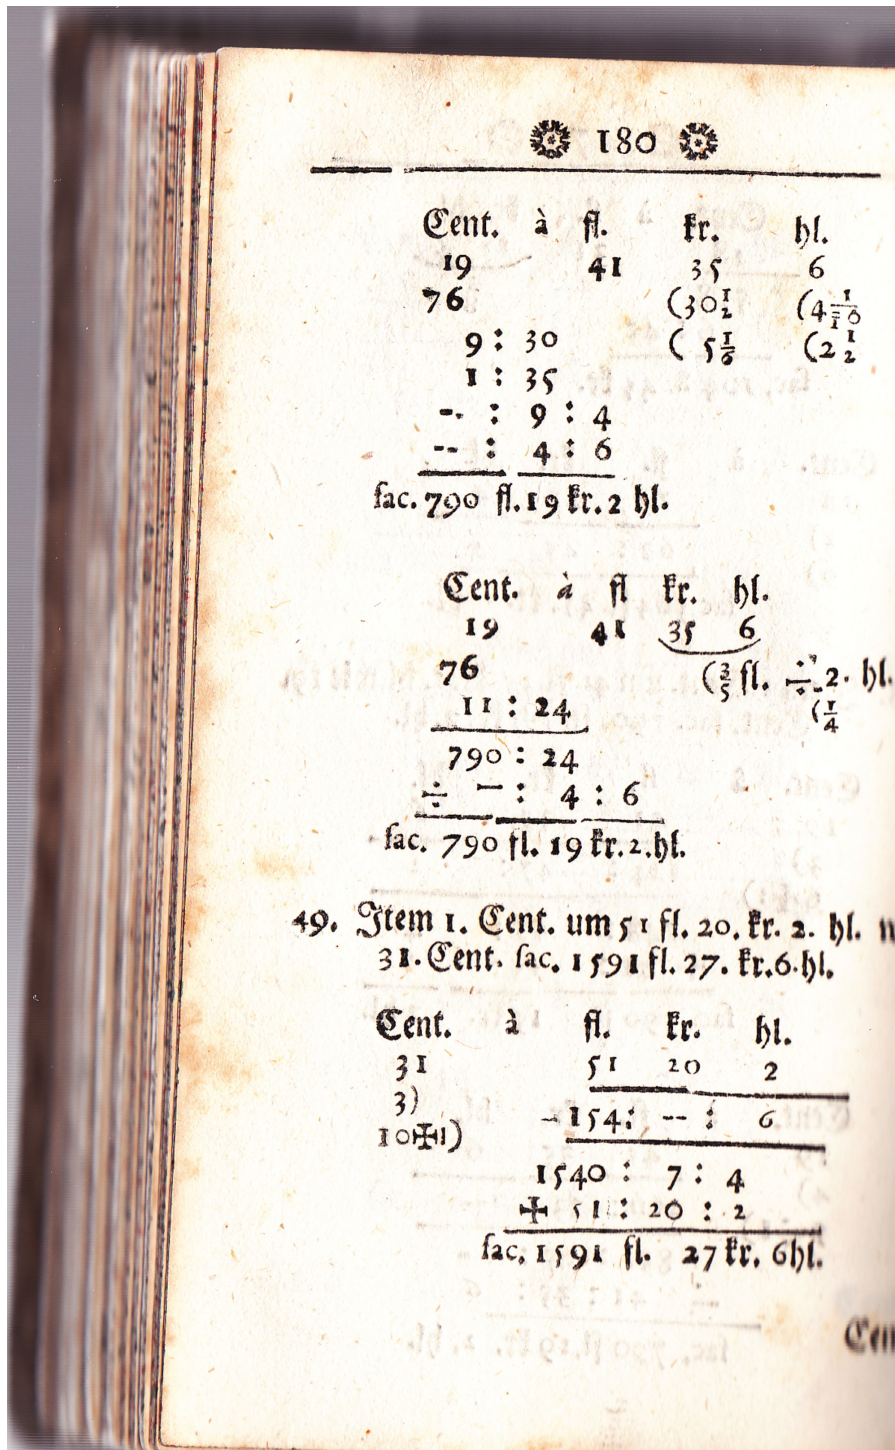 180
Cent. à fl. kr. hl.
19 41 35 6
76 (30½ (4⅒
9 : 30 ( 5⅙ (2½
1 : 35
-- : 9 : 4
-- : 4 : 6
fac. 790 fl. 19 kr. 2 hl.
Cent. à fl kr. hl.
19 41 35 6
76 (⅗ fl. ÷ 2. hl.
11 : 24 (¼
790 : 24
÷ — : 4 : 6
fac. 790 fl. 19 kr. 2. hl.
49. Item 1. Cent. um 51 fl. 20. kr. 2. hl.
31. Cent. fac. 1591 fl. 27. kr. 6. hl.
Cent. à fl. kr. hl.
31 51 20 2
3) 154: -- : 6
10✠1)
1540 : 7 : 4
✠ 51 : 20 : 2
fac. 1591 fl. 27 kr. 6 hl.